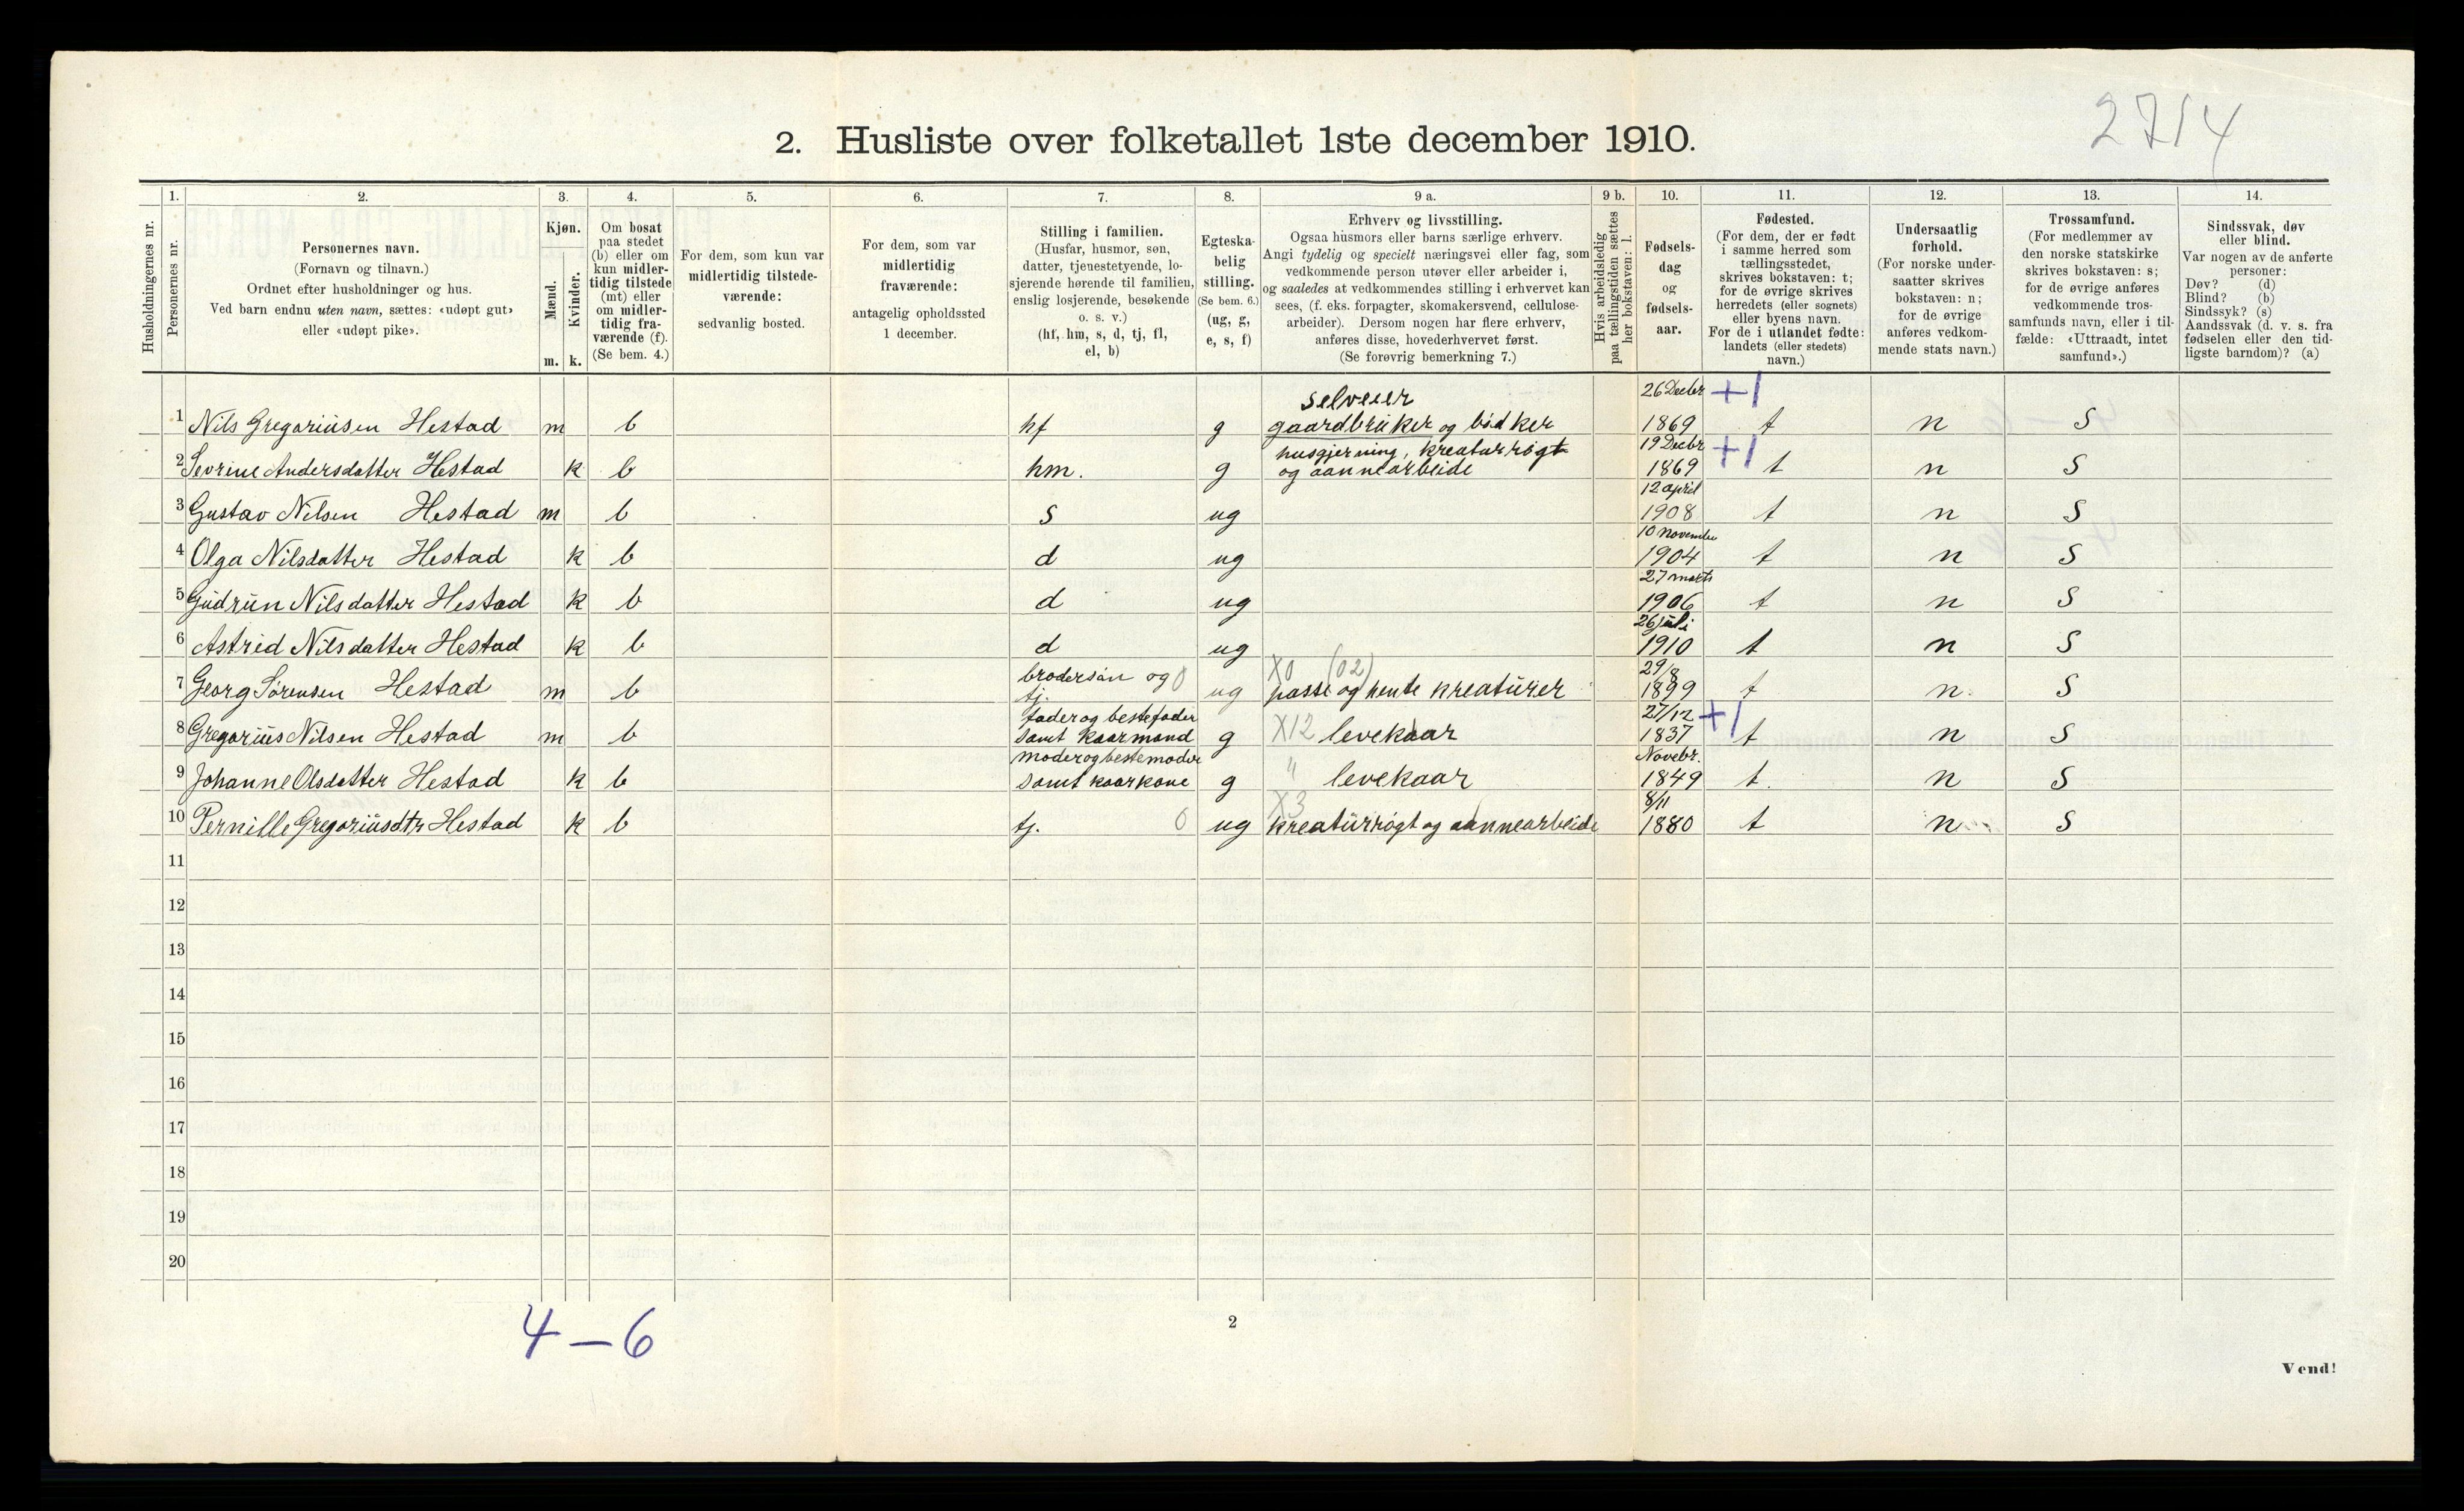 2714
2. Husliste over folketallet 1ste december 1910.
Husholdningernes nr.
1. Personernes nr.
2. Personernes navn. (Fornavn og tilnavn.) Ordnet efter husholdninger og hus. Ved barn endnu uten navn, sættes: «udøpt gut» eller «udøpt pike».
3. Kjøn. Mænd. m. Kvinder. k.
4. Om bosat paa stedet (b) eller om kun midlertidig tilstede (mt) eller om midlertidig fraværende (f). (Se bem. 4.)
5. For dem, som kun var midlertidig tilstedeværende: sedvanlig bosted.
6. For dem, som var midlertidig fraværende: antagelig opholdssted 1 december.
7. Stilling i familien. (Husfar, husmor, søn, datter, tjenestetyende, losjerende hørende til familien, enslig losjerende, besøkende o. s. v.) (hf, hm, s, d, tj, fl, el, b)
8. Egteskabelig stilling. (Se bem. 6.) (ug, g, e, s, f)
9 a. Erhverv og livsstilling. Ogsaa husmors eller barns særlige erhverv. Angi tydelig og specielt næringsvei eller fag, som vedkommende person utøver eller arbeider i, og saaledes at vedkommendes stilling i erhvervet kan sees, (f. eks. forpagter, skomakersvend, cellulosearbeider). Dersom nogen har flere erhverv, anføres disse, hovederhvervet først. (Se forøvrig bemerkning 7.)
9 b. Hvis arbeidsledig paa tællingstiden sættes her bokstaven: l.
10. Fødselsdag og fødselsaar.
11. Fødested. (For dem, der er født i samme herred som tællingsstedet, skrives bokstaven: t; for de øvrige skrives herredets (eller sognets) eller byens navn. For de i utlandet fødte: landets (eller stedets) navn.)
12. Undersaatlig forhold. (For norske undersaatter skrives bokstaven: n; for de øvrige anføres vedkommende stats navn.)
13. Trossamfund. (For medlemmer av den norske statskirke skrives bokstaven: s; for de øvrige anføres vedkommende trossamfunds navn, eller i tilfælde: «Uttraadt, intet samfund».)
14. Sindssvak, døv eller blind. Var nogen av de anførte personer: Døv? (d) Blind? (b) Sindssyk? (s) Aandssvak (d. v. s. fra fødselen eller den tidligste barndom)? (a)
1 Nils Gregoriüsen Hestad m b hf g selveier gaardbrüker og bødker 26 Decbr 1869 +1 t n S
2 Sevrine Andersdatter Hestad k b hm. g husgjerning, kreaturrögt og aannearbeide 19 Decbr 1869 +1 t n S
3 Gustav Nilsen Hestad m b s ug 12 april 1908 t n S
4 Olga Nilsdatter Hestad k b d ug 10 November 1904 t n S
5 Güdrün Nilsdatter Hestad k b d ug 27 marts 1906 t n S
6 Astrid Nilsdatter Hestad k b d ug 26 jüli 1910 t n S
7 Georg Sörensen Hestad m b brodersön og tj. 0 ug X0 (02) passe og hente kreatürer 29/8 1899 t n S
8 Gregoriüs Nilsen Hestad m b fader og bestefader samt kaarmand g X12 levekaar 27/12 1837 +1 t n S
9 Johanne Olsdatter Hestad k b moder og bestemoder samt kaarkone g " levekaar Novebr. 1849 t. n S
10 Pernille Gregoriüsdtr Hestad k b tj. 0 ug X3 kreatürrögt og aannearbeide 8/11 1880 t n S
11
12
13
14
15
16
17
18
19
20
4 – 6
2
Vend!